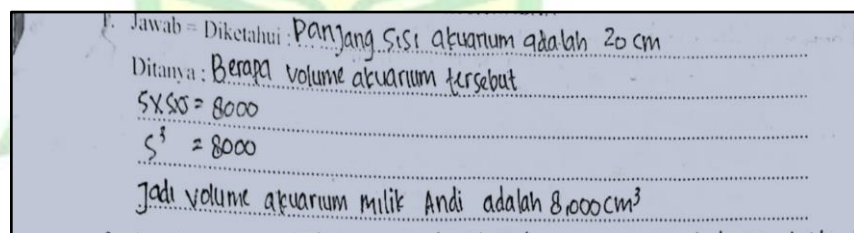 1. Jawab = Diketahui : Panjang sisi akuarium adalah 20 cm
Ditanya : Berapa volume akuarium tersebut
SXSXS = 8000
S³ = 8000
Jadi volume akuarium milik Andi adalah 8.000 cm³